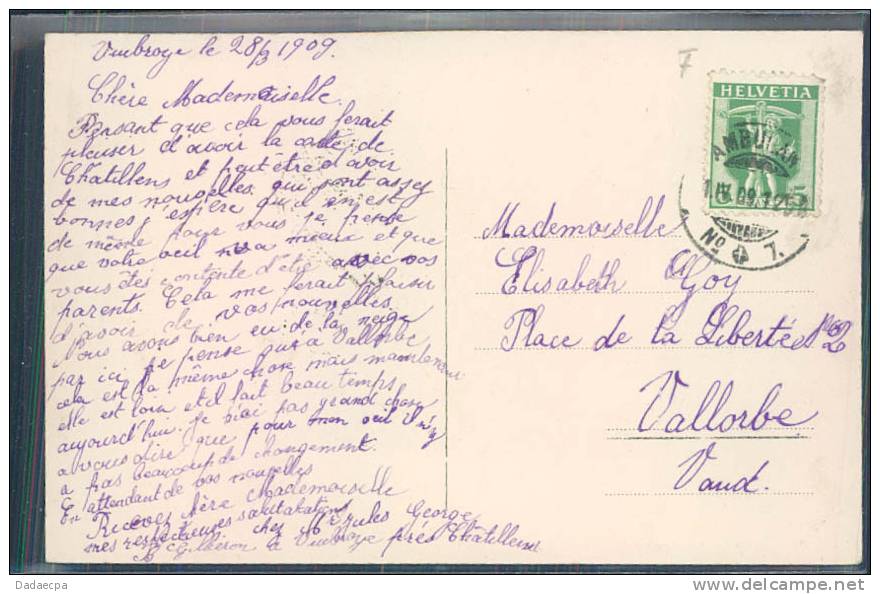 Vuibroye le 28/3 1909.
Chère Mademoiselle.
Pensant que cela vous ferait
plaiser d'avoir la carte de
Châtillens et peut être d'avoir
de mes nouvelles qui sont assez
bonnes j'espère qu'il en est
de même pour vous je pense
que votre oeil va mieux et que
vous êtes contente d'être avec vos
parents. Cela me ferait plaisir
d'avoir de vos nouvelles.
Nous avons bien eu de la neige
par ici, je pense qu'a Vallorbe
cela est la même chose mais maintenant
elle est loin et il fait beau temps
aujourd'hui. je n'ai pas grand chose
a vous dire que pour mon oeil il n'y
a pas beaucoup de changement.
En attendant de vos nouvelles
Recevez chère Mademoiselle
mes respectueuses salutations
George
chez Jules
Gilliéron à Vuibroye près Châtillens
F
HELVETIA
AMBULANT
5
No 7.
Mademoiselle
Elisabeth Goy
Place de la Libertée No 2
Vallorbe
Vaud.
Dadaecpa
www.delcampe.net